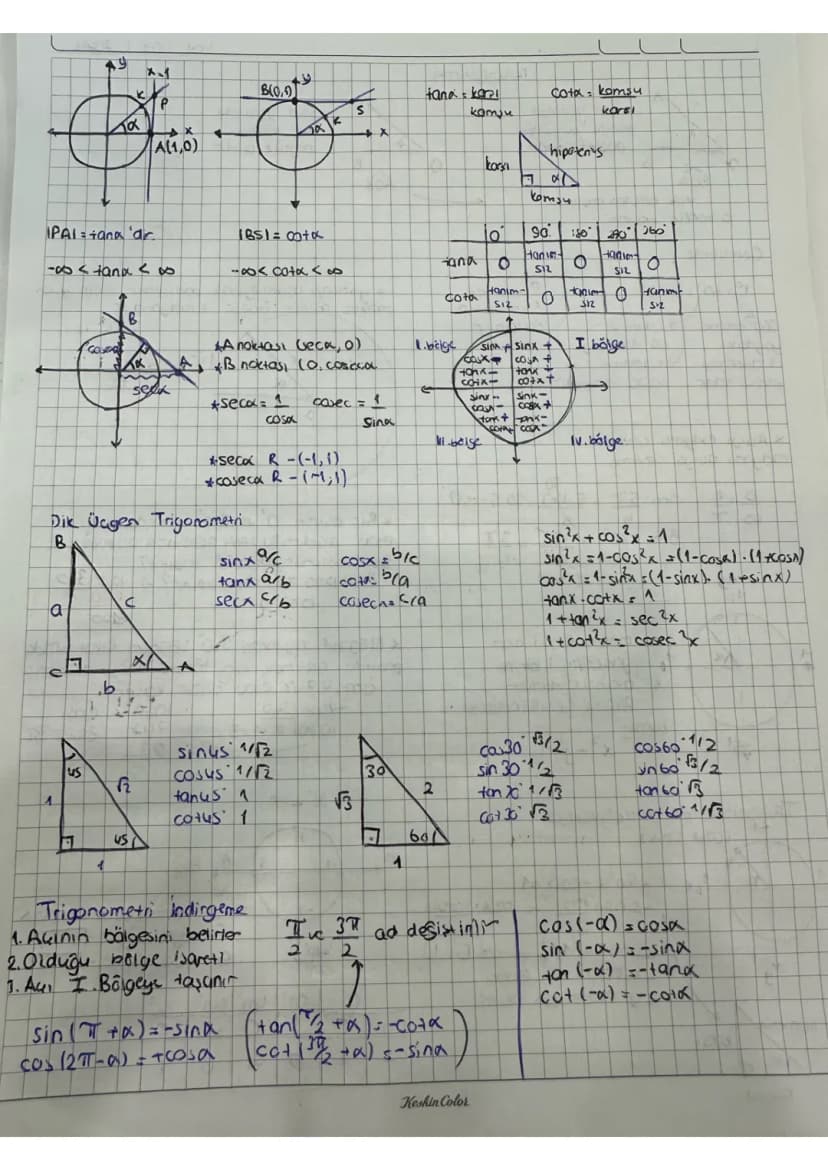 y x=1
K P
α x
A(1,0)
B(0,1) y
S
K
α x
tanα = karşı/komşu
cotα = komşu/karşı
karşı hipotenüs
α
komşu
|PA| = tanα'dır.
|BS| = cotα
-∞ < tanα < ∞
-∞ < cotα < ∞
0° 90° 180° 270° 360°
tanα 0 tanım-sız 0 tanım-sız 0
cotα tanım-sız 0 tanım-sız 0 tanım-sız
B
cosecα
1 α A
secα
*A noktası (secα, 0)
*B noktası (0, cosecα
*secα = 1/cosα cosec = 1/sinα
*secα R - (-1,1)
*cosecα R - (-1,1)
II.bölge I.bölge
sinx + sinx +
cosx - cosx +
tanx - tanx +
cotx - cotx +
sinx - sinx -
cosx - cosx +
tanx + tanx -
cotx + cotx -
III.bölge IV.bölge
Dik Üçgen Trigonometri
B
a c
C x A
b
sinx a/c cosx = b/c
tanx a/b cotx = b/a
secx c/b cosecx = c/a
sin²x + cos²x = 1
sin²x = 1-cos²x = (1-cosx).(1+cosx)
cos²x = 1-sin²x = (1-sinx).(1+sinx)
tanx.cotx = 1
1+tan²x = sec²x
1+cot²x = cosec²x
45
1 √2
45
1
sin45° 1/√2
cos45° 1/√2
tan45° 1
cot45° 1
30
√3 2
60
1
cos30° √3/2 cos60° 1/2
sin30° 1/2 sin60° √3/2
tan30° 1/√3 tan60° √3
cot30° √3 cot60° 1/√3
Trigonometri İndirgeme
1. Açının bölgesini belirler
2. Olduğu bölge işareti
3. Açı I. Bölgeye taşınır
π/2 ve 3π/2 ad değiştirilir
sin(π+α) = -sinα
cos(2π-α) = +cosα
(tan(π/2 +α) = -cotα
cot(3π/2 +α) = -sinα)
cos(-α) = cosα
sin(-α) = -sinα
tan(-α) = -tanα
cot(-α) = -cotα
KeskinColor